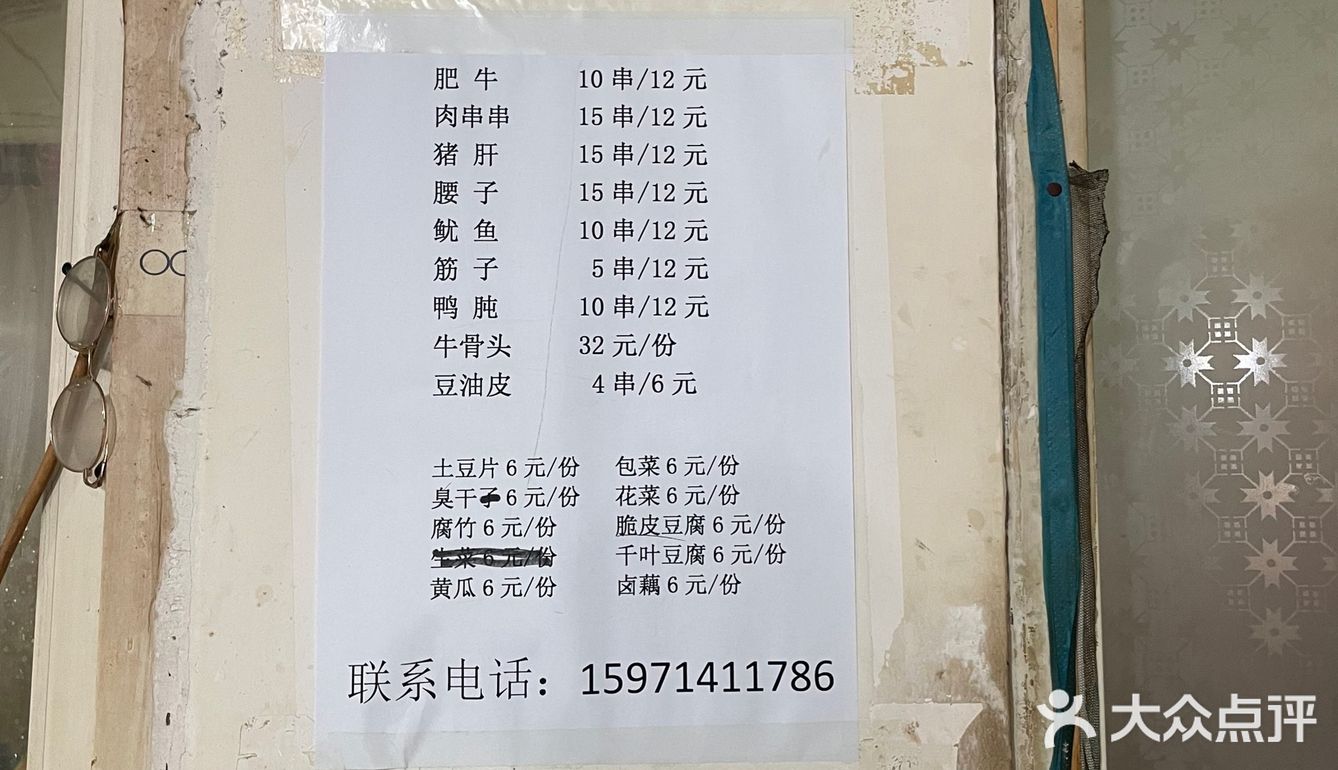 肥 牛 10 串/12 元
肉串串 15 串/12 元
猪 肝 15 串/12 元
腰 子 15 串/12 元
鱿 鱼 10 串/12 元
筋 子 5 串/12 元
鸭 肫 10 串/12 元
牛骨头 32 元/份
豆油皮 4 串/6 元
土豆片 6 元/份 包菜 6 元/份
臭干子 6 元/份 花菜 6 元/份
腐竹 6 元/份 脆皮豆腐 6 元/份
生菜 6 元/份 千叶豆腐 6 元/份
黄瓜 6 元/份 卤藕 6 元/份
联系电话：15971411786
大众点评